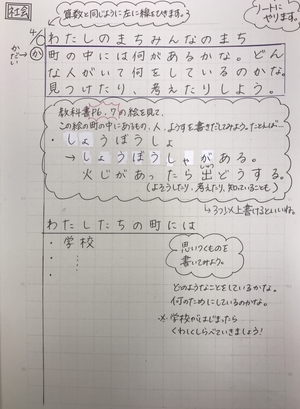 社会
算数と同じように左に線をひきます。
ノートに
やります。
4/6
わたしのまちみんなのまち
かだい
か
町の中には何があるかな。どん
な人がいて何をしているのかな。
見つけたり、考えたりしよう。
教科書P6.7の絵を見て、
この絵の町の中にあるもの、人、ようすを書きだしてみよう。たとえば…
・しょうぼうしょ
→しょうぼうしゃがある。
火じがあったら出どうする。
しゅつ
(よそうしたり、考えたり、知っていることも)
3つ以上書けるといいね。
わたしたちの町には
・学校
・…
・…
思いつくものを
書いてみよう。
どのようなことをしているかな。
何のためにしているのかな。
※学校がはじまったら
くわしくしらべていきましょう!